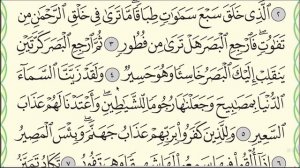 ٢ ٱلَّذِى خَلَقَ سَبْعَ سَمَٰوَٰتٍ طِبَاقًا مَّا تَرَىٰ فِى خَلْقِ ٱلرَّحْمَٰنِ مِن
تَفَٰوُتٍ فَٱرْجِعِ ٱلْبَصَرَ هَلْ تَرَىٰ مِن فُطُورٍ ٣ ثُمَّ ٱرْجِعِ ٱلْبَصَرَ كَرَّتَيْنِ
يَنقَلِبْ إِلَيْكَ ٱلْبَصَرُ خَاسِئًا وَهُوَ حَسِيرٌ ٤ وَلَقَدْ زَيَّنَّا ٱلسَّمَآءَ
ٱلدُّنْيَا بِمَصَٰبِيحَ وَجَعَلْنَٰهَا رُجُومًا لِّلشَّيَٰطِينِ وَأَعْتَدْنَا لَهُمْ عَذَابَ
ٱلسَّعِيرِ ٥ وَلِلَّذِينَ كَفَرُوا۟ بِرَبِّهِمْ عَذَابُ جَهَنَّمَ وَبِئْسَ ٱلْمَصِيرُ